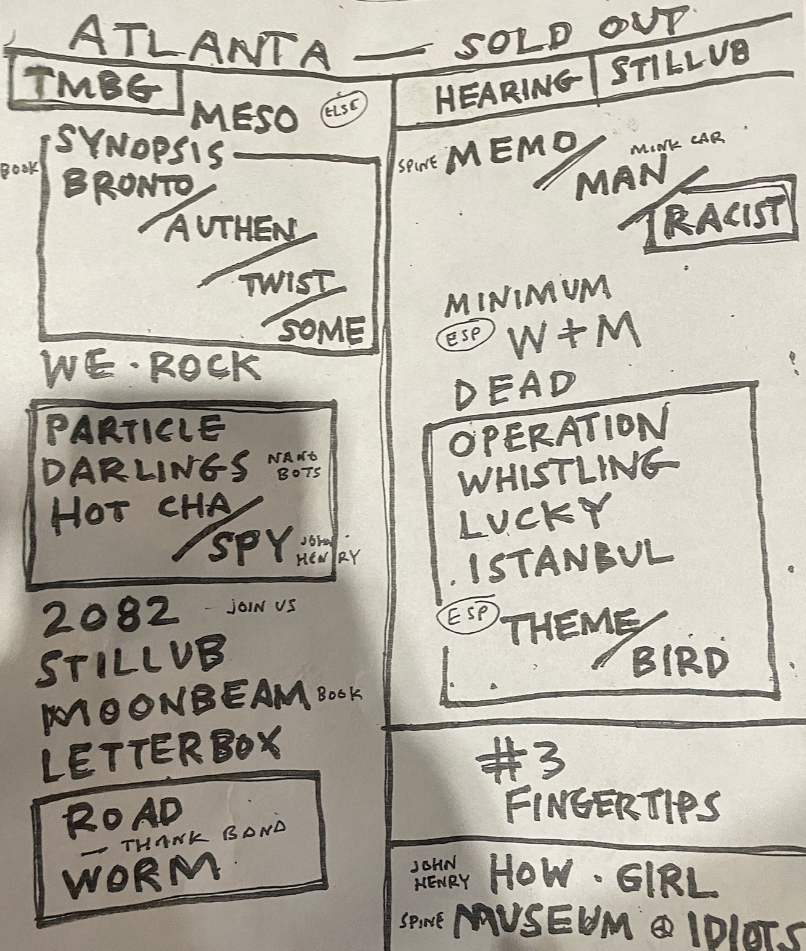 ATLANTA — SOLD OUT
TMBG
MESO ELSE
BOOK SYNOPSIS
BRONTO/
AUTHEN/
TWIST/
SOME
WE · ROCK
PARTICLE
DARLINGS NANO BOTS
HOT CHA/
SPY JOHN HENRY
2082 - JOIN US
STILLUB
MOONBEAM BOOK
LETTERBOX
ROAD
— THANK BAND
WORM
HEARING | STILLUB
SPINE MEMO/
MAN/ MINK CAR
RACIST
MINIMUM
ESP W+M
DEAD
OPERATION
WHISTLING
LUCKY
. ISTANBUL
ESP THEME/
BIRD
#3
FINGERTIPS
JOHN HENRY HOW · GIRL
SPINE MUSEUM @ IDIOTS